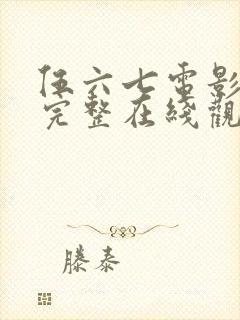 伍六七電影
完整在綫觀
滕泰